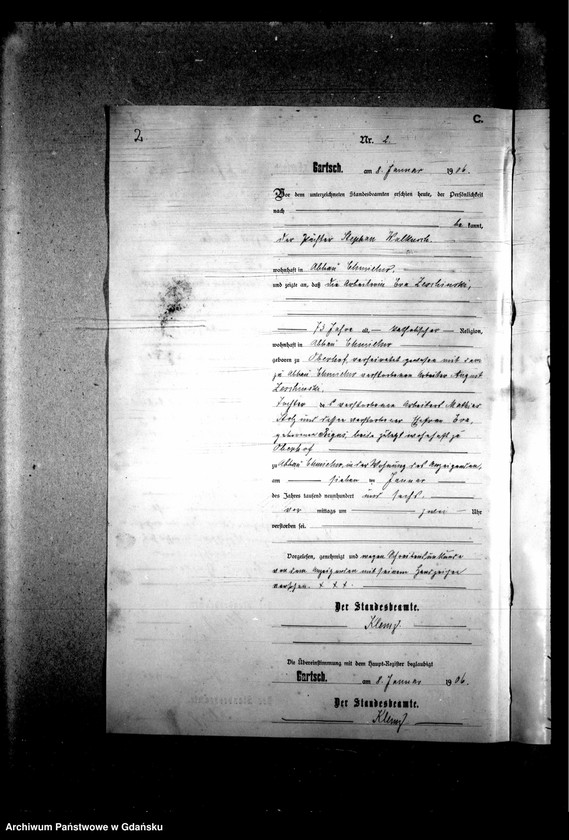 C.
2
Nr. 2.
Gartsch. am 8. Januar 1906.
Vor dem unterzeichneten Standesbeamten erschien heute, der Persönlichkeit
nach
be kannt,
der Pächter Stephan
wohnhaft in Abbau Chmielno,
und zeigte an, daß die Arbeiterin Eva
73 Jahre alt, katholischer Religion,
wohnhaft in Abbau Chmielno
geboren zu Oberhof, verheiratet gewesen mit dem
zu Abbau Chmielno verstorbenen Arbeiter August
Tochter des verstorbenen Arbeiters Mathias
und dessen verstorbener Ehefrau Eva,
geborene beide zuletzt wohnhaft zu
Oberhof
zu Abbau Chmielno, in der Wohnung des Anzeigenden,
am sieben ten Januar
des Jahres tausend neunhundert und sechs.
vor mittags um zwei Uhr
verstorben sei.
Vorgelesen, genehmigt und wegen Schreibensunkunde
von dem Anzeigenden mit seinem Handzeichen
versehen. + + +
Der Standesbeamte.
Klemz
Die Übereinstimmung mit dem Haupt-Register beglaubigt
Gartsch. am 8. Januar 1906.
Der Standesbeamte.
Klemz
Archiwum Państwowe w Gdańsku